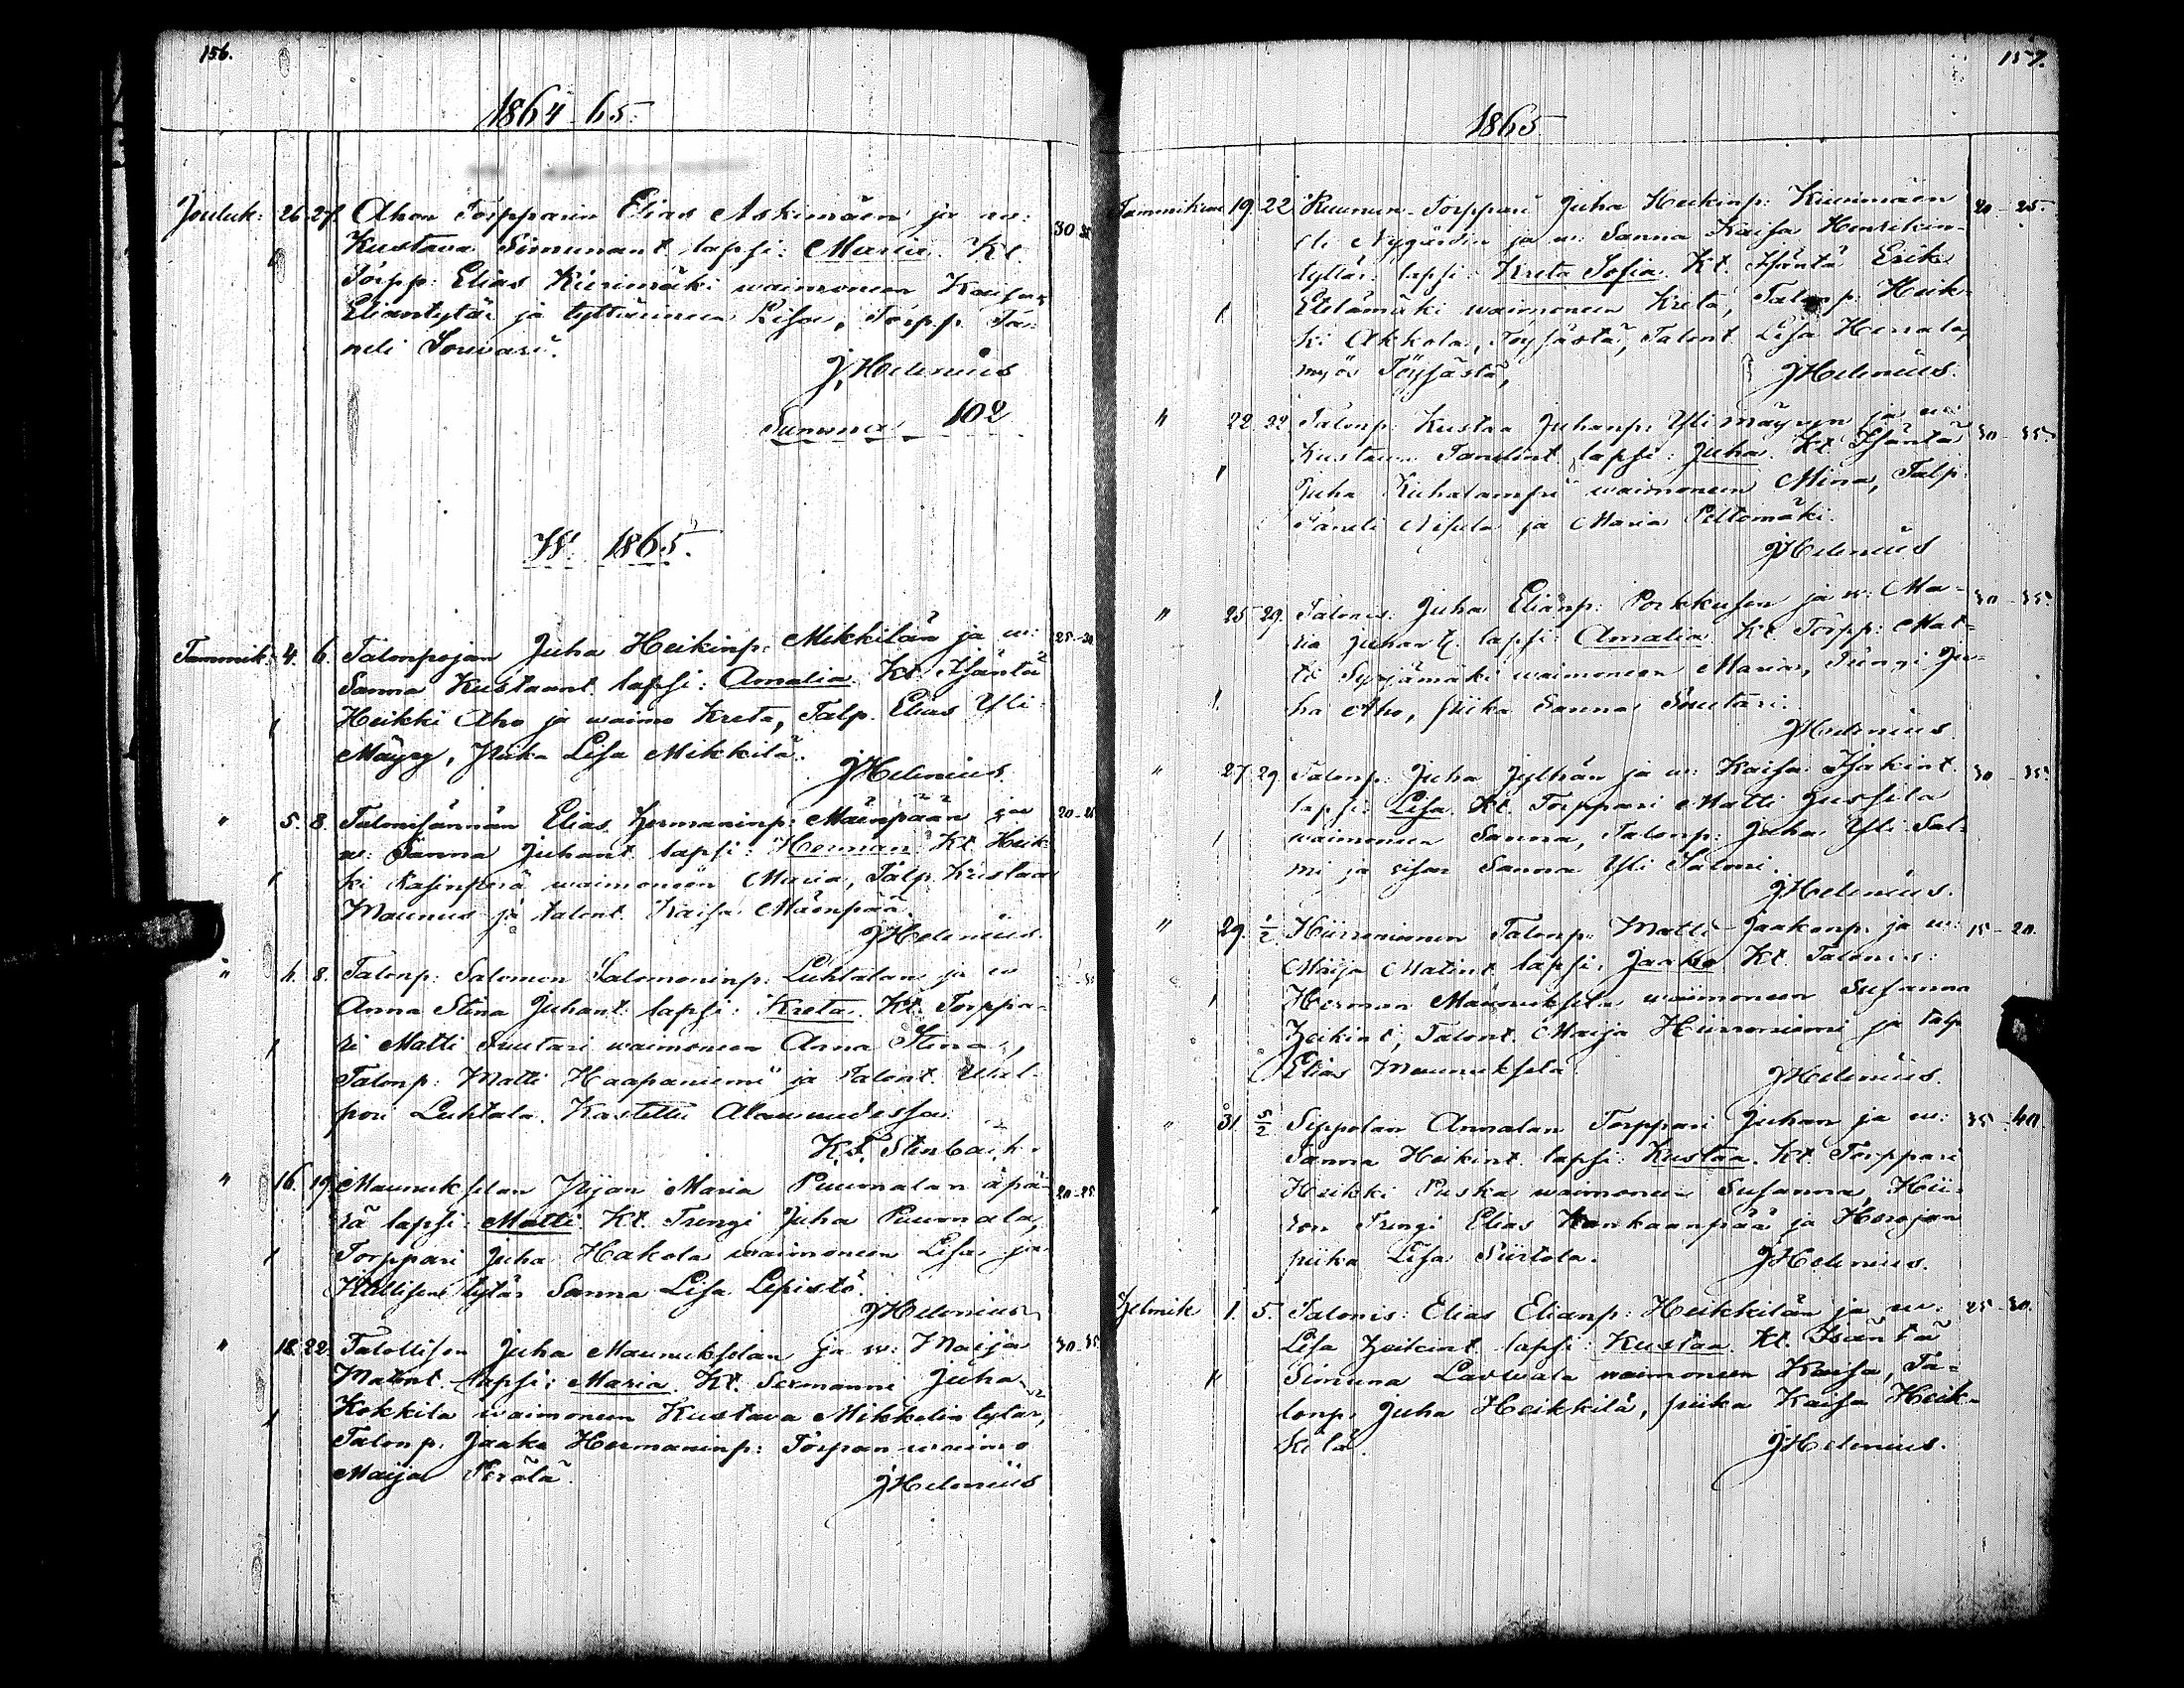 156.
1864-65.
Jouluk: 26. 27. Ahon Torpparin Elias Askimäen ja w: 30
Kustava Simunant. lapsi: Maria. Kt.
Torpp: Elias Kiirimäki waimoneen Kaisa
Eliantytär ja tyttärineen Lisa, Torpp. Ta-
neli Souwari.
J Helenius
Summa 102
W. 1865.
Tammik: 4. 6. Talonpojan Juha Heikinp: Mikkilän ja w: 25-30
Sanna Kustaant. lapsi: Amalia. Kt. Isäntä
Heikki Aho ja waimo Kreta, Talp. Elias Yli-
Mäyry, Piika Lisa Mikkilä.
J Helenius.
" 5. 8. Talonisännän Elias Hermaninp: Mäenpään ja 20-25
w: Sanna Juhant. lapsi: Herman. Kt. Heik-
ki Kasinperä waimoneen Maria, Talp. Kustaa
Maunus ja talont. Kaisa Mäenpää.
J Helenius.
" 6. 8. Talonp: Salomon Salomoninp: Luhtalan ja w
Anna Stina Juhant. lapsi: Kreta. Kt. Torppa-
ri Matti Suutari waimoneen Anna Stina,
Talonp: Matti Haapaniemi ja Talont. Wal-
pori Luhtala. Kastettu Alawuudessa.
K. F. Stenbäck.
" 16. 19. Maunukselan Piijan Maria Puumalan äpä- 20-25
rä lapsi: Matti. Kt. Trengi Juha Puumala,
Torppari Juha Hakola waimoneen Lisa ja
Itellisen tytär Sanna Lisa Lepistö.
J Helenius
" 18. 22. Talollisen Juha Maunukselan ja w: Maija 30-35
Matint. lapsi: Maria. Kt. Sexmanni Juha
Kokkila waimoneen Kustava Mikkelin tytär,
Talonp. Jaako Hermaninp: Torpan waimo
Maija Perälä.
J Helenius
157.
1865
Tammikuu 19. 22. Ruunun-Torppari Juha Heikinp: Kiwimäen 20-25.
eli Nygårdin ja w: Sanna Kaisa Henrikin-
tyttär: lapsi: Kreta Sofia. Kt. Isäntä Erik
Etelämäki waimoneen Kreta, Talonp. Heik-
ki Akkola, Töysästä, Talont. Lisa Herrala,
myös Töysästä,
J Helenius.
" 22. 22. Talonp: Kustaa Juhanp: Yli mäyryn ja w: 30-35.
Kustawa Tanelint. lapsi: Juha. Kt. Isäntä
Juha Kuhalampi waimoneen Mina, Talp.
Taneli Nisula ja Maria Peltomäki.
J Helenius
" 25. 29. Talonis: Juha Elianp: Porkkusen ja w: Ma- 30-35.
ria Juhant. lapsi: Amalia. Kt. Torpp: Mat-
ti Syrjämäki waimoneen Maria, Trengi Ju-
ha Aho, piika Sanna Suutari.
J Helenius.
" 27. 29. Talonp: Juha Jylhän ja w: Kaisa Isakint. 30-35.
lapsi: Lisa. Kt. Torppari Matti Jussila
waimoneen Sanna, Talonp: Juha Yli Sal-
mi ja sisar Sanna Yli Salmi.
J Helenius.
" 29. 1/2 Hiirenniemen Talonp: Matti Jaakonp. ja w: 15-20.
Maija Matint. lapsi: Jaako. Kt. Talonis:
Herman Maunuksela waimoneen Susanna
Heikint, Talont. Maija Hiirenniemi ja talp
Elias Maunuksela.
J Helenius.
" 31. 5/2 Sippolan Annalan Torppari Juhan ja w: 35-40.
Sanna Heikint. lapsi: Kustaa. Kt. Torppari
Heikki Puska waimoneen Susanna, Hii-
ron Trengi Elias Kankaanpää ja Horojan
piika Lisa Siirtola.
J Helenius.
Helmik 1. 5. Talonis: Elias Elianp: Heikkilän ja w: 25-30.
Lisa Heikint. lapsi: Kustaa. Kt. Isäntä
Simuna Lawwala waimoneen Kaisa, Ta-
lonp. Juha Heikkilä, piika Kaisa Heik-
kilä.
J Helenius.